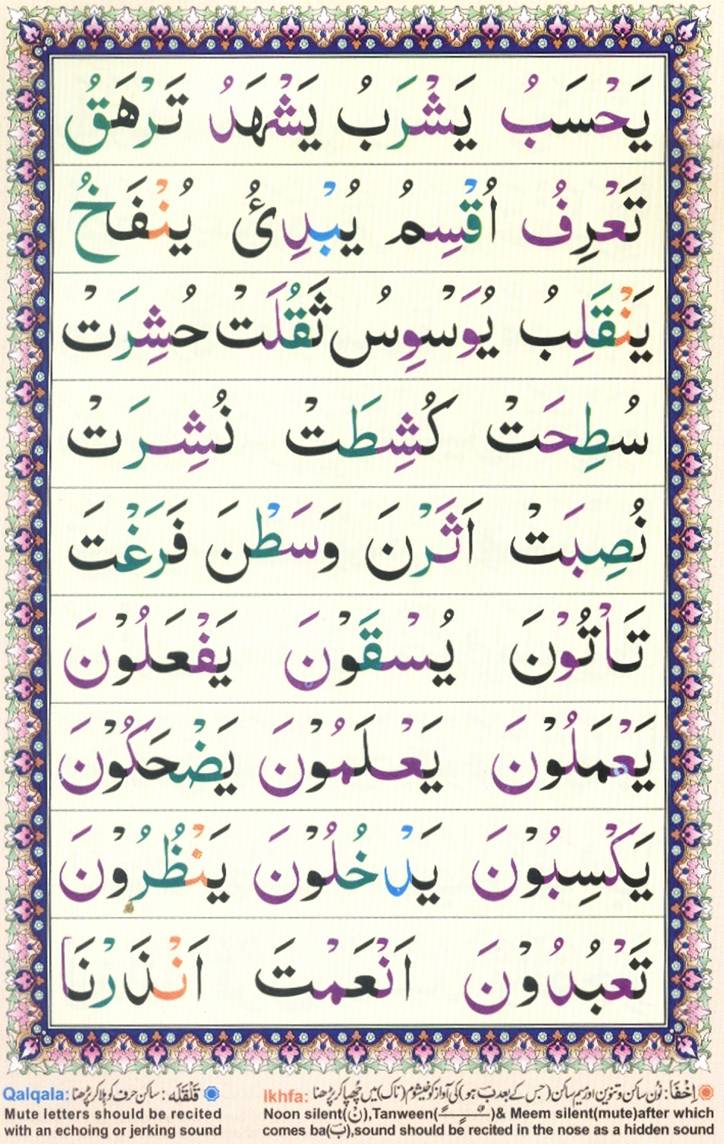 يَحْسَبُ يَشْرَبُ يَشْهَدُ تَرْهَقُ
تَعْرِفُ اُقْسِمُ يُبْدِئُ يُنْفَخُ
يَنْقَلِبُ يُوَسْوِسُ ثَقُلَتْ حُشِرَتْ
سُطِحَتْ كُشِطَتْ نُشِرَتْ
نُصِبَتْ اَثَرْنَ وَسَطْنَ فَرَغْتَ
تَاْتُوْنَ يُسْقَوْنَ يَفْعَلُوْنَ
يَعْمَلُوْنَ يَعْلَمُوْنَ يَضْحَكُوْنَ
يَكْسِبُوْنَ يَدْخُلُوْنَ يَنْظُرُوْنَ
تَعْبُدُوْنَ اَنْعَمْتَ اَنْذَرْنَا
اِخْفَا: نون ساکن و تنوین اور میم ساکن (جس کے بعد ب ہو) کی آواز کو خیشوم (ناک) میں چھپا کر پڑھنا Ikhfa:
Noon silent(نْ),Tanween(ـًـٍـٌ)& Meem silent(mute)after which
comes ba(ب),sound should be recited in the nose as a hidden sound
قَلْقَلَه: ساکن حرف کو ہلا کر پڑھنا Qalqala:
Mute letters should be recited
with an echoing or jerking sound